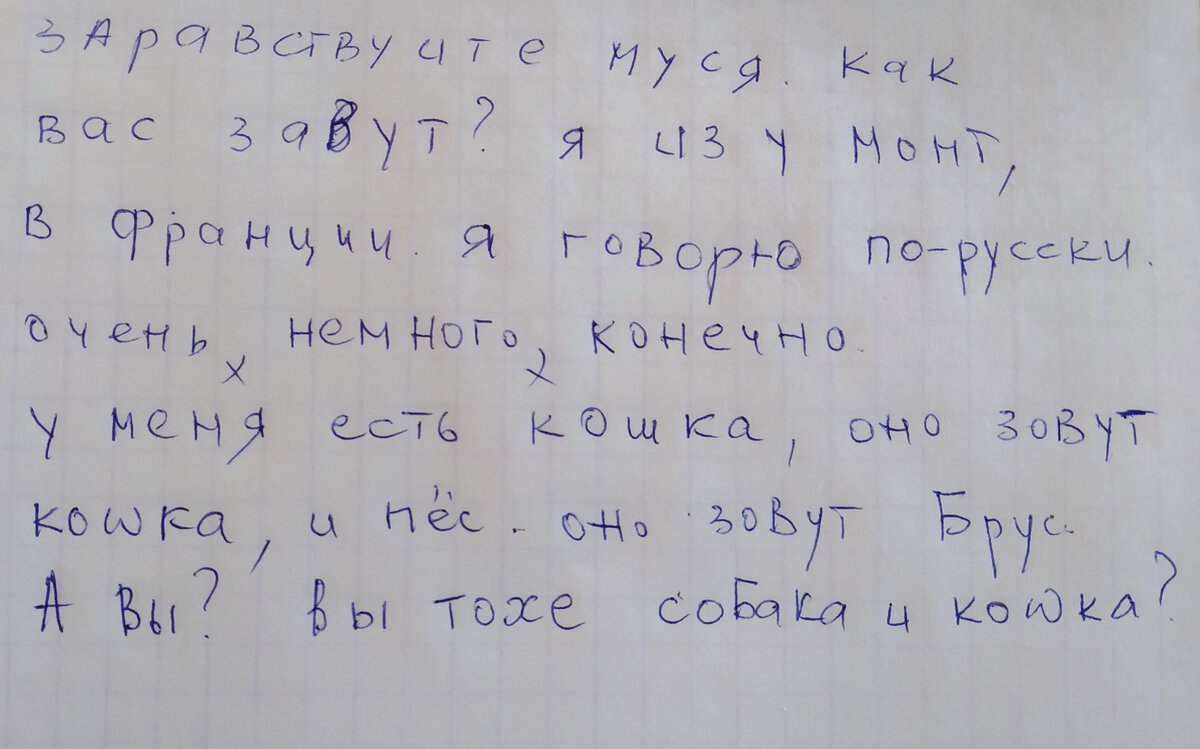 здравствуите муся. как
вас завут? я из у монт,
в франции. я говорю по-русски.
очень, немного, конечно.
у меня есть кошка, оно зовут
кошка, и пёс. оно зовут Брус.
А вы? вы тохе собака и кошка?